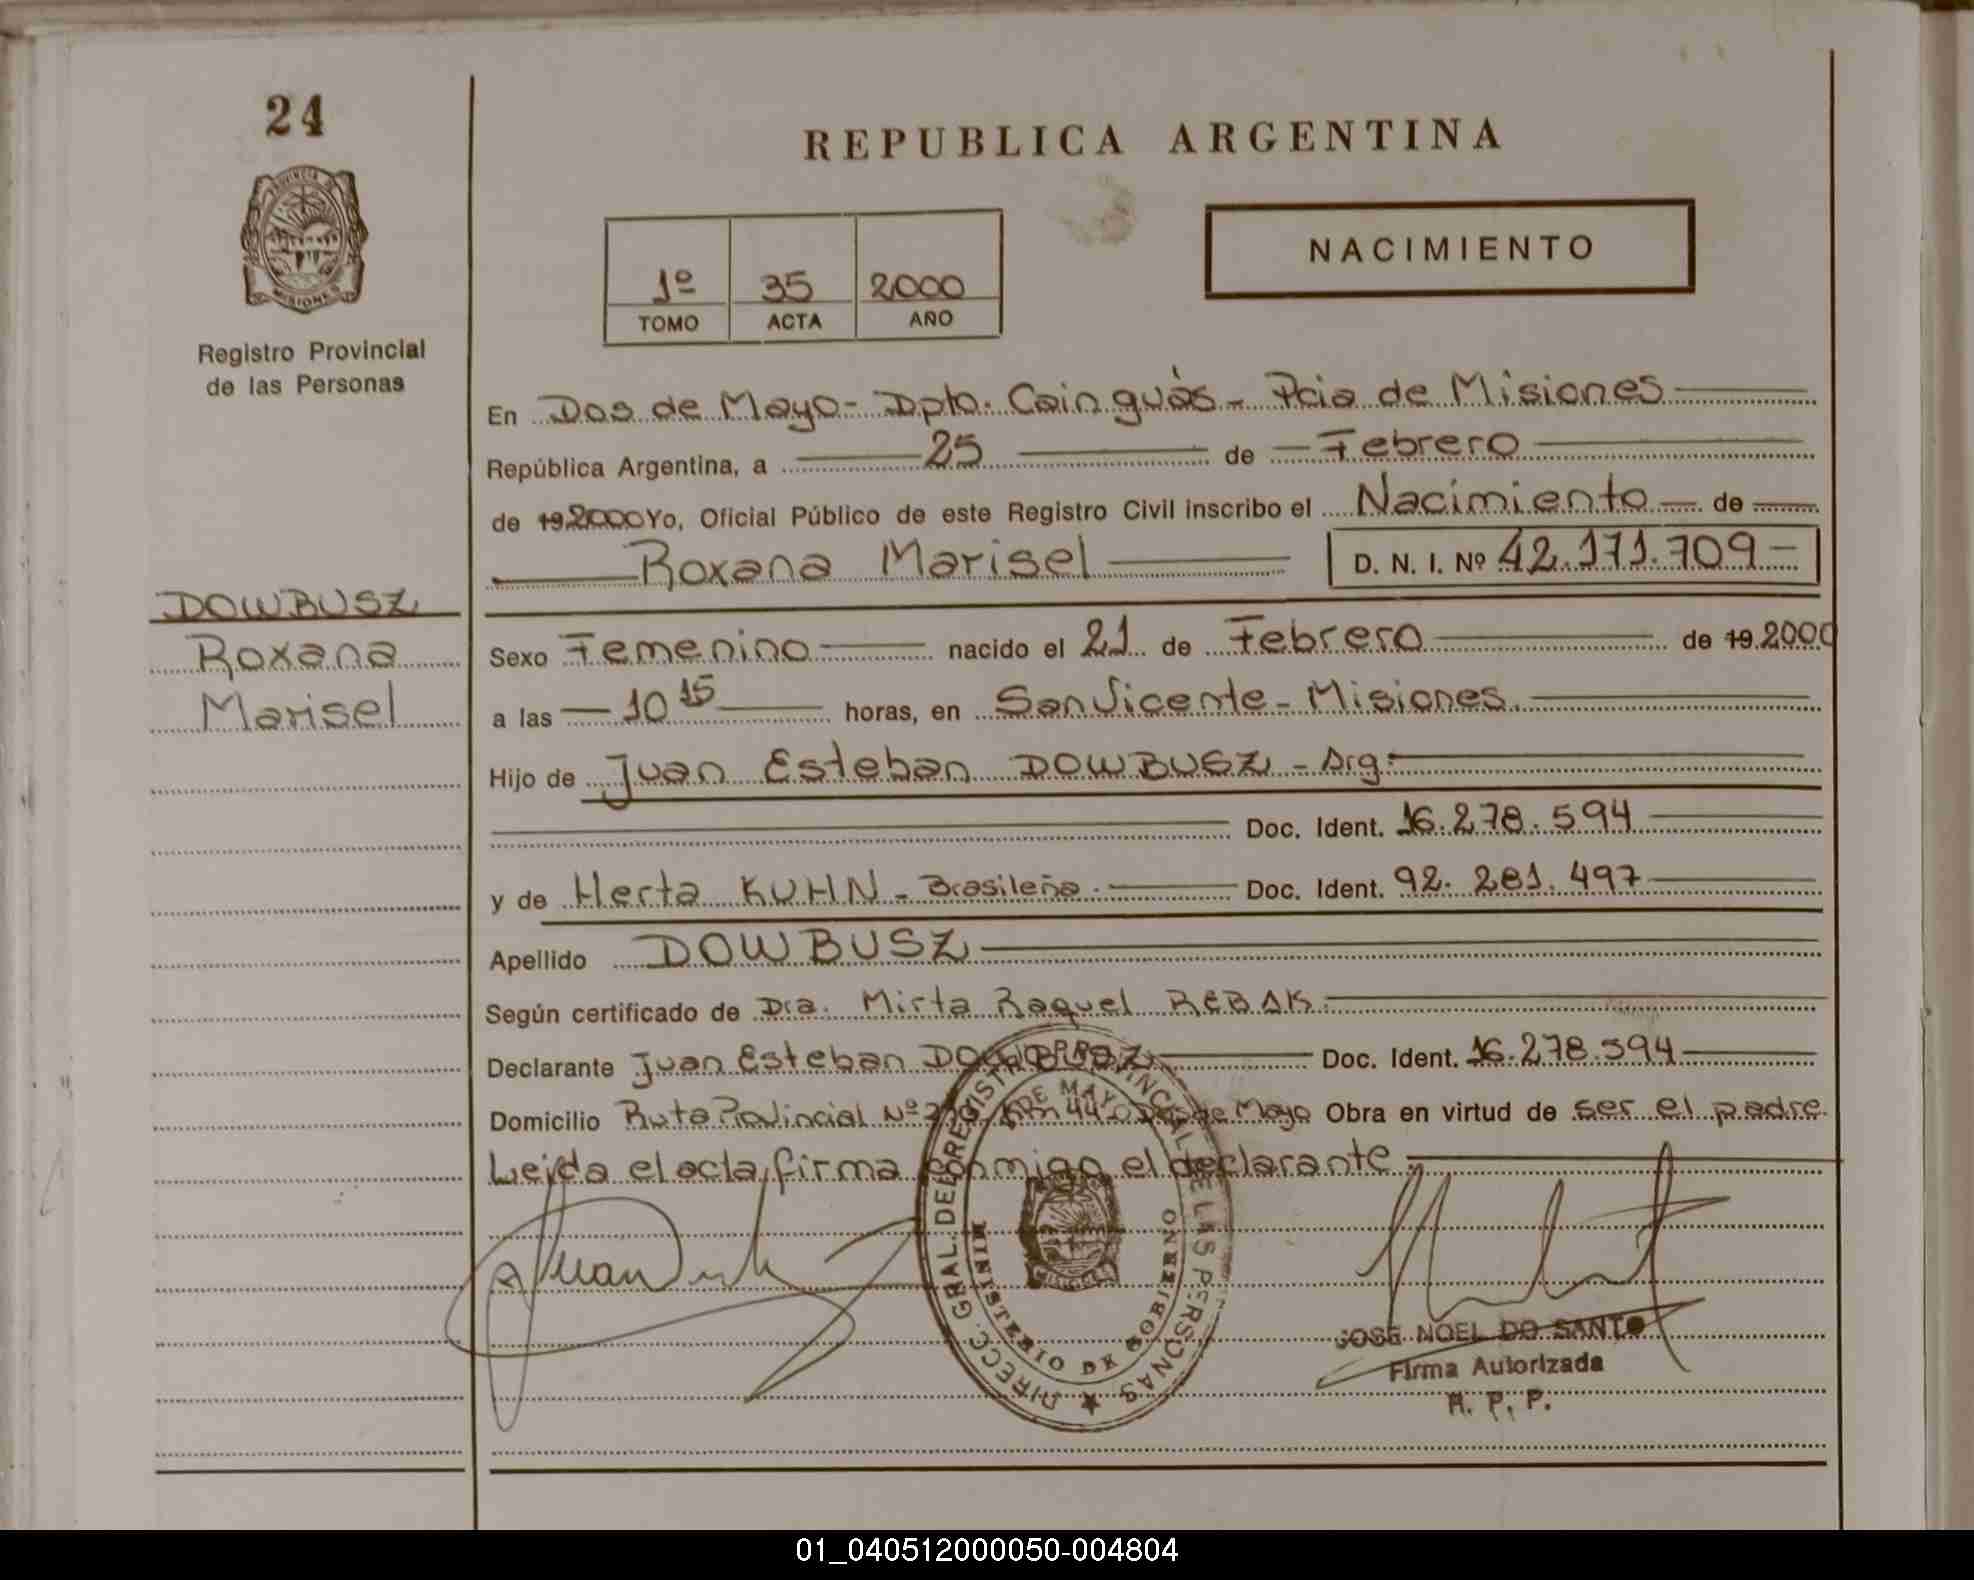 24
PROVINCIA DE
MISIONES
Registro Provincial
de las Personas
DOWBUSZ
Roxana
Marisel
REPUBLICA ARGENTINA
1º 35 2000
TOMO ACTA AÑO
NACIMIENTO
En Dos de Mayo - Dpto. Cainguás - Pcia de Misiones
República Argentina, a 25 de Febrero
de 19 2000 Yo, Oficial Público de este Registro Civil inscribo el Nacimiento de
Roxana Marisel D. N. I. Nº 42.171.709-
Sexo Femenino nacido el 21 de Febrero de 19 2000
a las 10 15 horas, en San Vicente - Misiones.
Hijo de Juan Esteban DOWBUSZ - Arg.
Doc. Ident. 16.278.594
y de Herta KUHN - Brasileña. Doc. Ident. 92.281.497
Apellido DOWBUSZ
Según certificado de Dra. Mirta Raquel REBAK.
Declarante Juan Esteban DOWBUSZ Doc. Ident. 16.278.594
Domicilio Ruta Provincial Nº Km Dos de Mayo Obra en virtud de ser el padre.
Leida el acta, firma conmigo el declarante.
Juan
DIRECC. GRAL. DEL REGISTRO PROVINCIAL DE LAS PERSONAS
DE MAYO
MINISTERIO DE GOBIERNO
JOSE NOEL DO SANTO
Firma Autorizada
R. P. P.
01_040512000050-004804